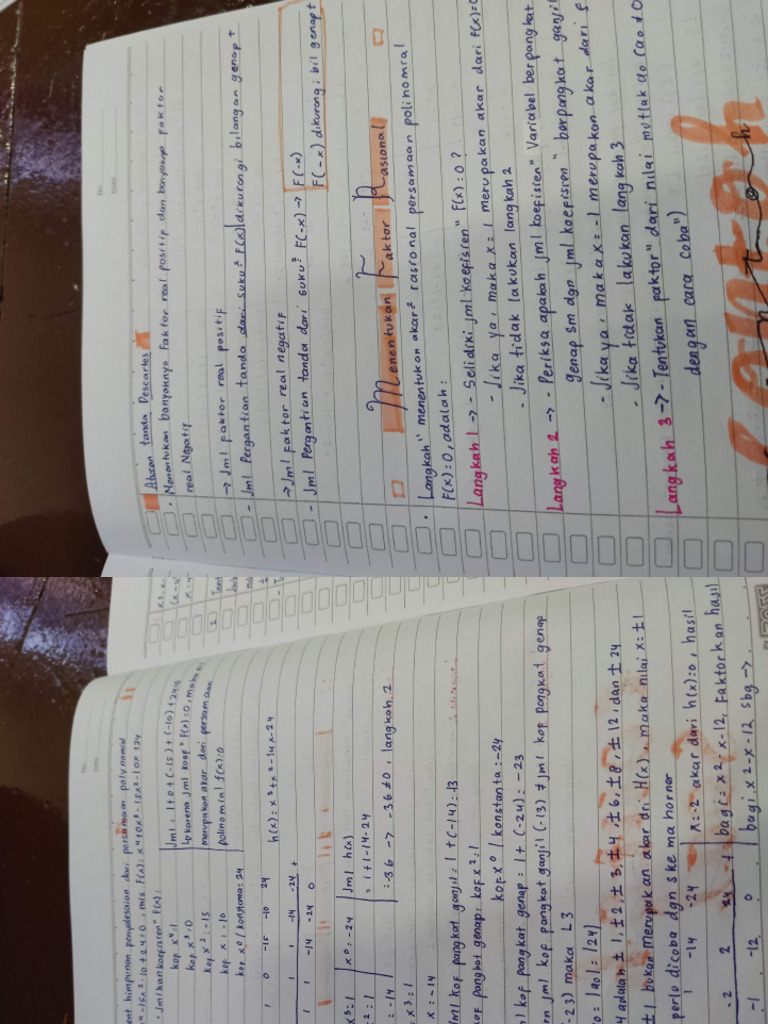 No.
Date.
Aturan tanda Descartes
• Menentukan banyaknya faktor real positif dan banyaknya faktor
real Negatif
→ Jml faktor real positif
- Jml Pergantian tanda dari suku² F(x) dikurangi bilangan genap +
→ Jml faktor real negatif
- Jml Pergantian tanda dari suku² F(-x) → F(-x)
F(-x) dikurangi bil genap +
Menentukan Faktor Rasional
• Langkah" menentukan akar² rasional persamaan polinomial
F(x)=0, adalah:
Langkah 1 → - Selidiki jml koefisien" F(x)=0?
- Jika ya, maka x=1 merupakan akar dari F(x)=0
- Jika tidak lakukan langkah 2
Langkah 2 → - Periksa apakah jml koefisien" Variabel berpangkat
genap sm dgn jml koefisien" berpangkat ganjil
- Jika ya, maka x=-1 merupakan akar dari
- Jika tidak lakukan langkah 3
Langkah 3 → - Tentukan faktor" dari nilai mutlak a0 (a0 ≠ 0
dengan cara coba")
Contoh
No.
Date.
himpunan penyelesaian dari persamaan polynomial
-15x²-10+24=0, mis F(x): x⁴+0x³-15x²-10x+24
• Jmlkan koefisien" F(x):
kof x⁴: 1
kof x³: 0
kof x²: -15
kof x: -10
kof x⁰ / konstanta: 24
Jml = 1+0+(-15)+(-10)+24=0
karena jml koef" F(x)=0, maka
merupakan akar dari persamaan
polinomial f(x)=0
1 0 -15 -10 24
1 1 -14 -24 +
1 1 -14 -24 0
h(x)= x³+x²-14x-24
x³=1
x²: 1
= -14
x⁰= -24
Jml h(x)
= 1+1-14-24
= -36 → -36 ≠ 0, langkah 2
x³: 1
x = -14
Jml kof pangkat ganjil: 1+(-14)=-13
kof pangkat genap: kof x²: 1
kof x⁰ / konstanta: -24
kof pangkat genap = 1+(-24) = -23
jml kof pangkat ganjil (-13) ≠ jml kof pangkat genap
-23) maka L3
= |a0| = |24|
adalah ±1, ±2, ±3, ±4, ±6, ±8, ±12, dan ±24
±1 bukan merupakan akar dri H(x), maka nilai x = ±1
perlu dicoba dgn skema horner
1 -14 -24
-2 2 24 +
-1 -12 0
x=-2 akar dari h(x)=0, hasil
bagi = x²-x-12, Faktorkan hasil
bagi x²-x-12 sbg →